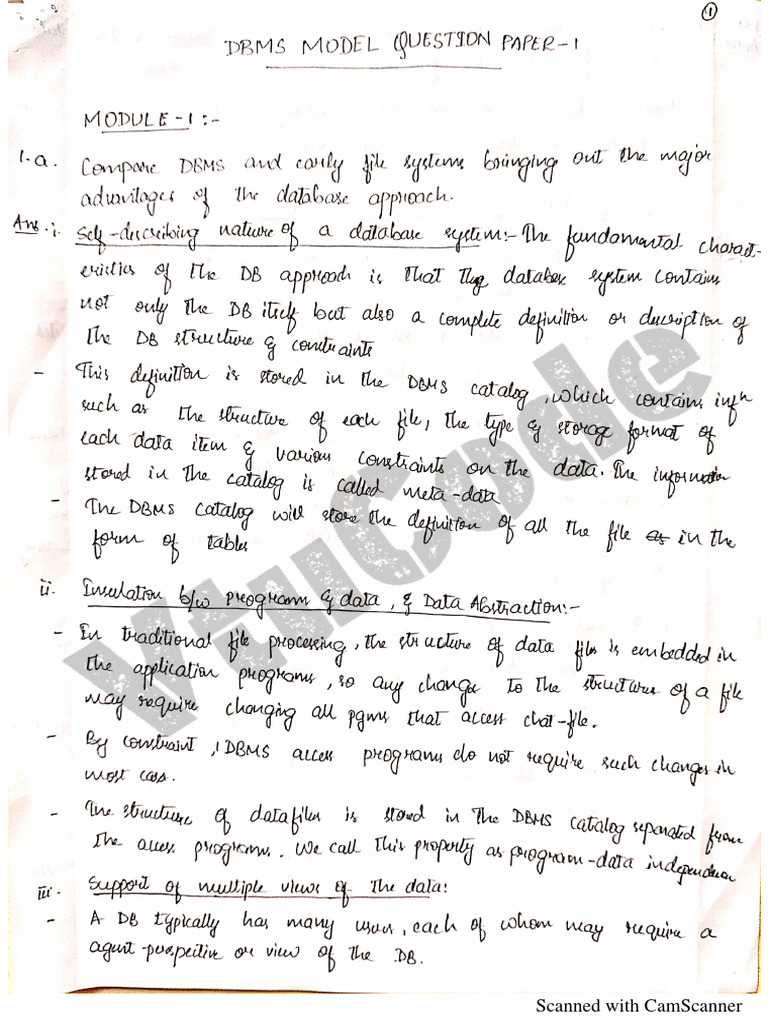 1
DBMS MODEL QUESTION PAPER-1
MODULE-1:-
1.a. Compare DBMS and early file systems bringing out the major
advantages of the database approach.
Ans. i. Self-describing nature of a database system:- The fundamental charact-
eristics of the DB approach is that the database system contains
not only the DB itself but also a complete definition or description of
the DB structure & constraints
- This definition is stored in the DBMS catalog, which contains infn
such as the structure of each file, the type & storag format of
each data item & various constraints on the data. The information
stored in the catalog is called meta-data
- The DBMS catalog will store the definition of all the file as in the
form of tables
ii. Insulation b/w program & data, & Data Abstraction:-
- In traditional file processing, the structure of data files is embedded in
the application programs, so any change to the structure of a file
may require changing all pgms that access that-file.
- By constraint, DBMS access programs do not require such changes in
most cases.
- The structure of datafiles is stored in the DBMS catalog separated from
the access programs. We call this property as program-data independence
iii. Support of multiple views of the data:
- A DB typically has many users, each of whom may require a
perspective or view of the DB.
VtuCode
Scanned with CamScanner